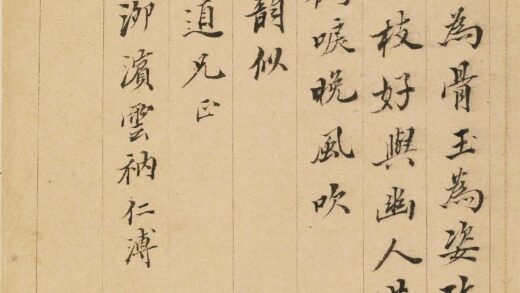 為骨玉為姿
枝好與幽人
唳晚風吹
韻似
道兄正
泖濱雲衲仁溥